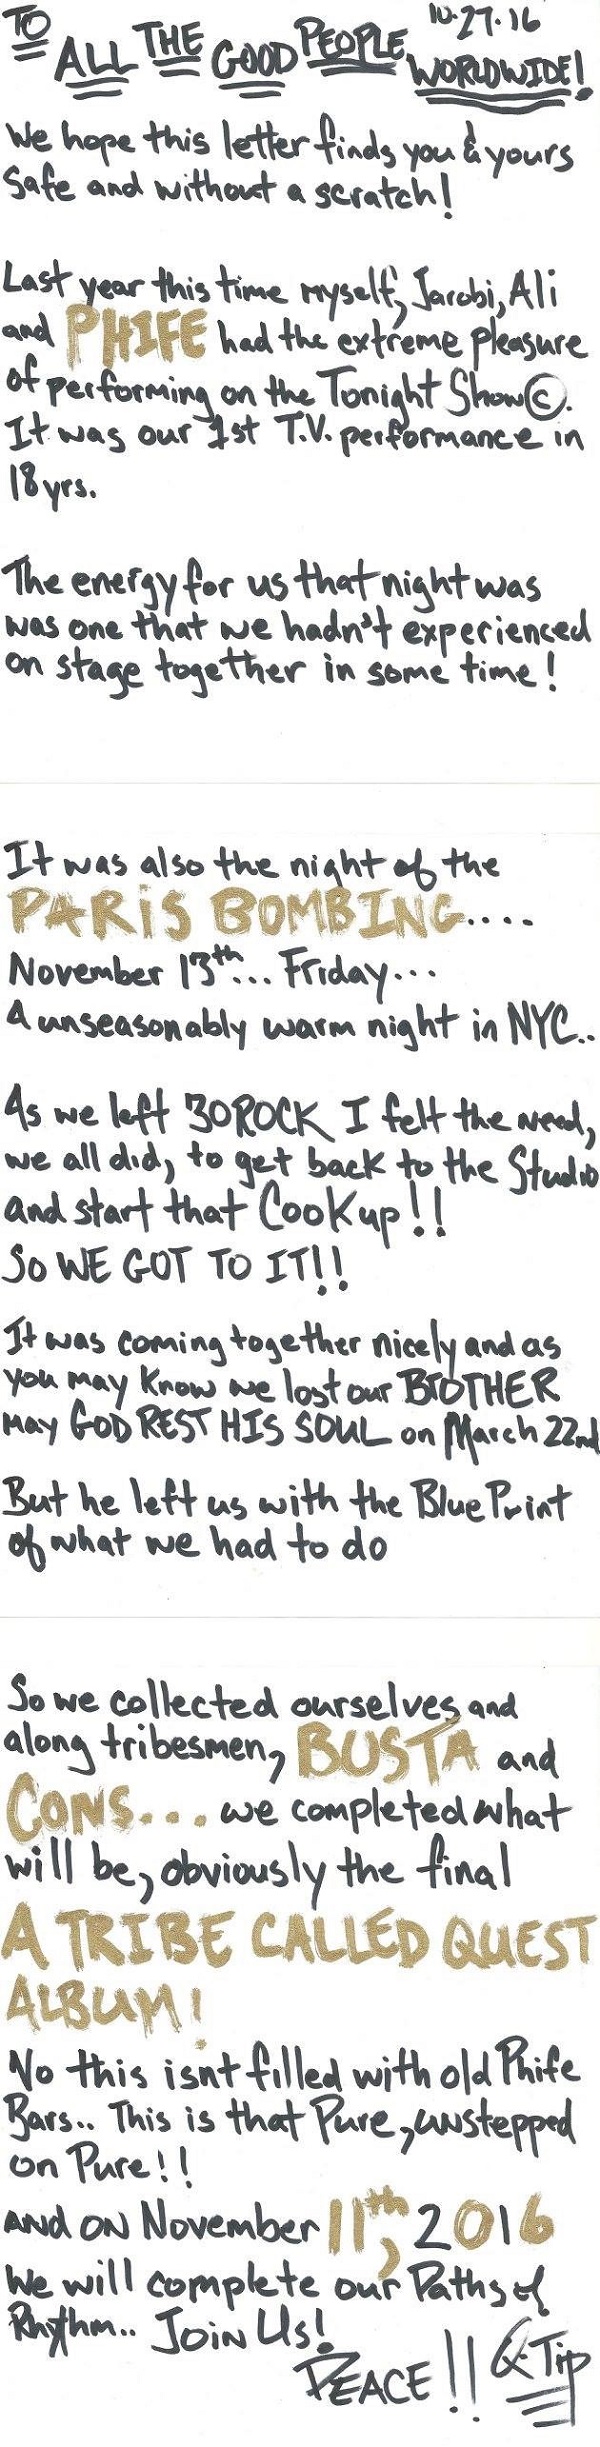 TO ALL THE GOOD PEOPLE WORLDWIDE! 10.27.16
We hope this letter finds you & yours
Safe and without a scratch!
Last year this time myself, Jarobi, Ali
and PHIFE had the extreme pleasure
of performing on the Tonight Show©.
It was our 1st T.V. performance in
18 yrs.
The energy for us that night was
was one that we hadn't experienced
on stage together in some time!
It was also the night of the
PARIS BOMBING....
November 13th... Friday...
A unseasonably warm night in NYC..
As we left 30ROCK I felt the need,
we all did, to get back to the Studio
and start that Cook up!!
SO WE GOT TO IT!!
It was coming together nicely and as
you may know we lost our BROTHER
may GOD REST HIS SOUL on March 22nd
But he left us with the Blue Print
of what we had to do
So we collected ourselves and
along tribesmen, BUSTA and
CONS... we completed what
will be, obviously the final
A TRIBE CALLED QUEST
ALBUM!
No this isnt filled with old Phife
Bars.. This is that Pure, unstepped
on Pure!!
AND ON November 11th, 2016
We will complete our Paths of
Rhythm.. Join Us!
PEACE!! Q-Tip